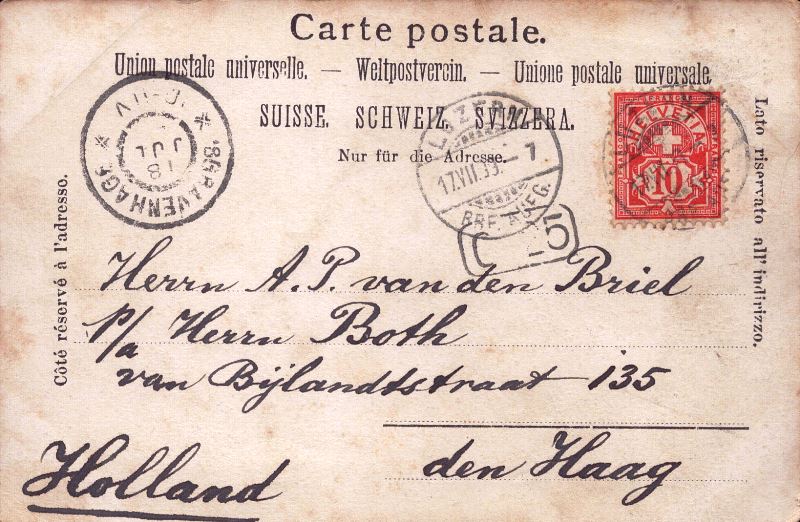 Carte postale.
Union postale universelle. — Weltpostverein. — Unione postale universale
SUISSE. SCHWEIZ. SVIZZERA.
Nur für die Adresse.
Côté réservé à l'adresse.
Lato riservato all' indirizzo.
'SGRAVENHAGE
18
JUL
LUZERN
17.VII.
7
BRF. AUFG.
FRANCO
HELVETIA
10
5
Herrn A. P. van den Briel
p/a Herrn Both
van Bijlandtstraat 135
den Haag
Holland